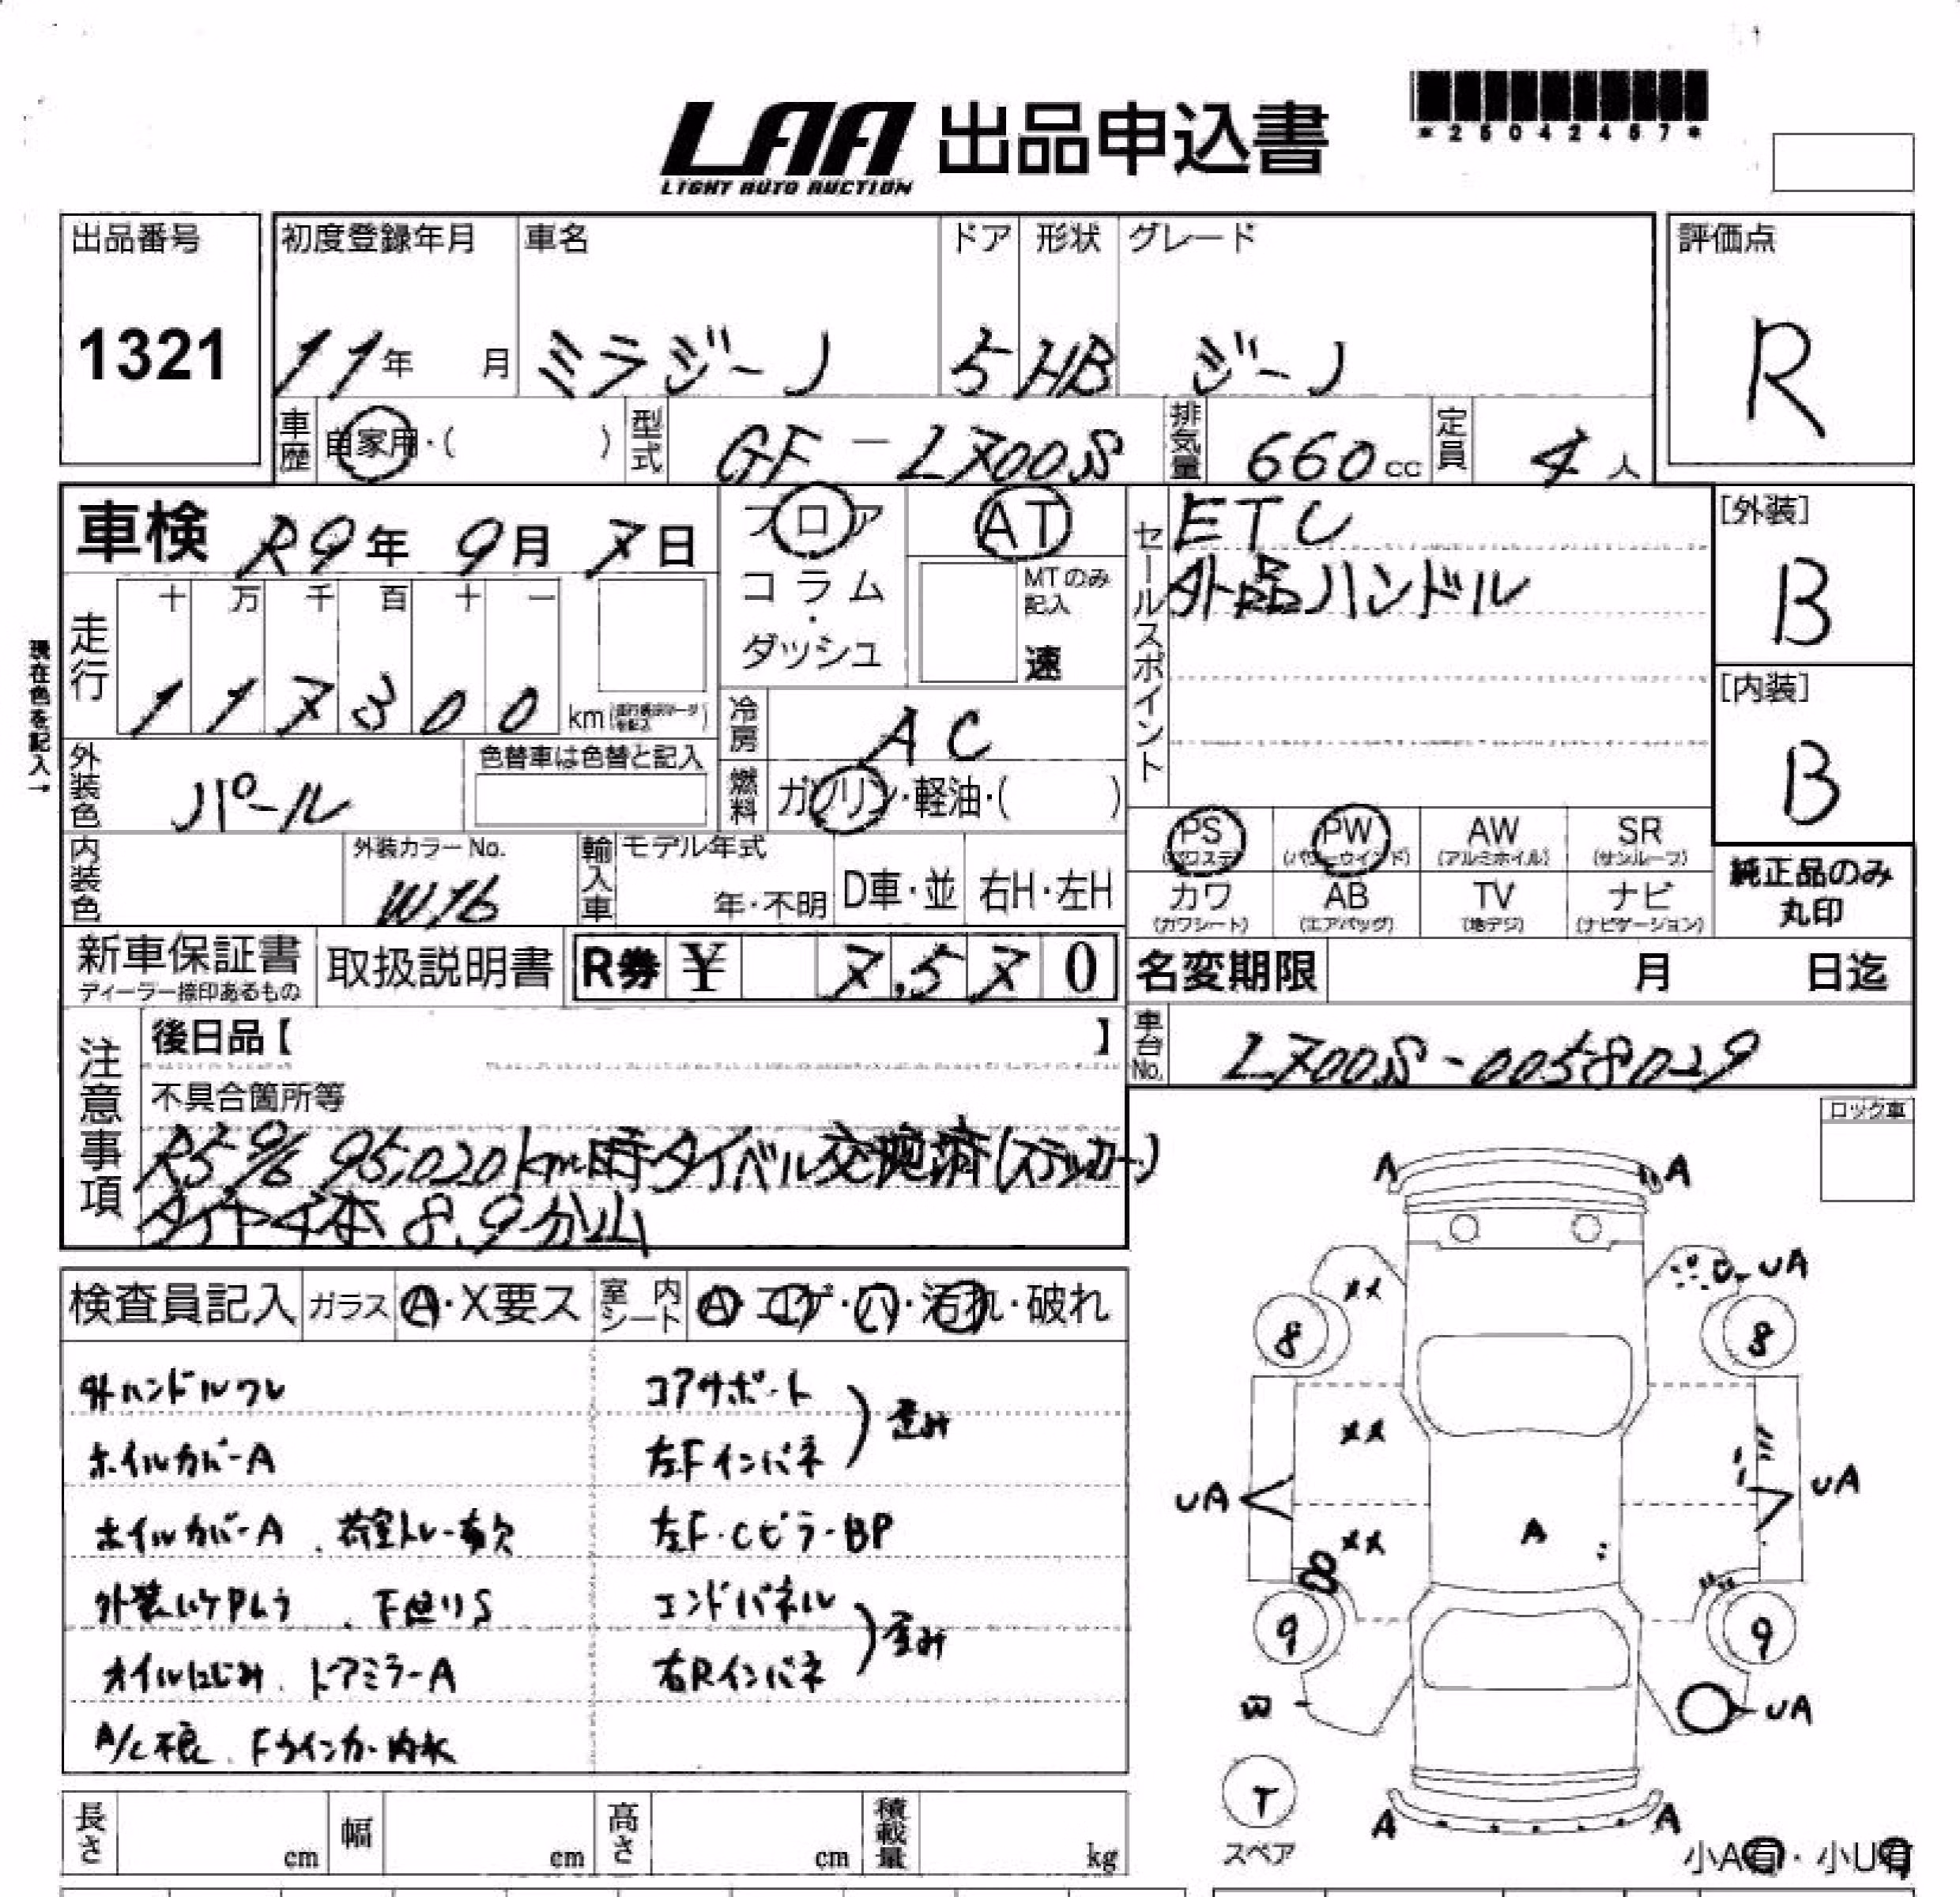 LAA 出品申込書
LIGHT AUTO AUCTION
*25042467*
出品番号
1321
初度登録年月
11年 月
車名
ミラジーノ
ドア
5
形状
HB
グレード
ジーノ
評価点
R
車歴 自家用・( )
型式 GF-L700S
排気量 660cc
定員 4人
車検 R9年 9月 7日
フロア
コラム
・
ダッシュ
AT
MTのみ
記入
速
セールスポイント
ETC
外品ハンドル
[外装]
B
[内装]
B
現在色を記入→
走行
十 万 千 百 十 一
1 1 7 3 0 0 km
冷房 AC
燃料 ガソリン・軽油・( )
外装色 パール
色替車は色替と記入
内装色
外装カラーNo.
W16
輸入車
モデル年式
年・不明
D車・並
右H・左H
PS
(パワステ)
PW
(パワーウインド)
AW
(アルミホイル)
SR
(サンルーフ)
カワ
(カワシート)
AB
(エアバッグ)
TV
(地デジ)
ナビ
(ナビゲーション)
純正品のみ
丸印
新車保証書
ディーラー捺印あるもの
取扱説明書
R券 ¥ 7,570
名変期限 月 日迄
車台No. L700S-0058029
注意事項
後日品【 】
不具合箇所等
R5 9/6 95,020km時タイベル交換済(ステッカー)
タイヤ4本 8.9分山
ロック車
検査員記入
ガラス A・X要ス
室内シート A・コゲ・ハ・汚れ・破れ
外ハンドルワレ
ホイルカバーA
ホイルカバーA . 荷室トレー有欠
外装ハケPムラ . 下廻りS
オイルにじみ. ドアミラーA
A/C不良. Fウインカー内水
コアサポート
左Fインパネ
歪み
左F・CピラーBP
エンドパネル
右Rインパネ
歪み
A A
XX
UA
8 8
XX
UA UA
A
XX
9 9
W
UA
T
スペア
A A
小A有・小U有
長さ cm
幅 cm
高さ cm
積載量 kg